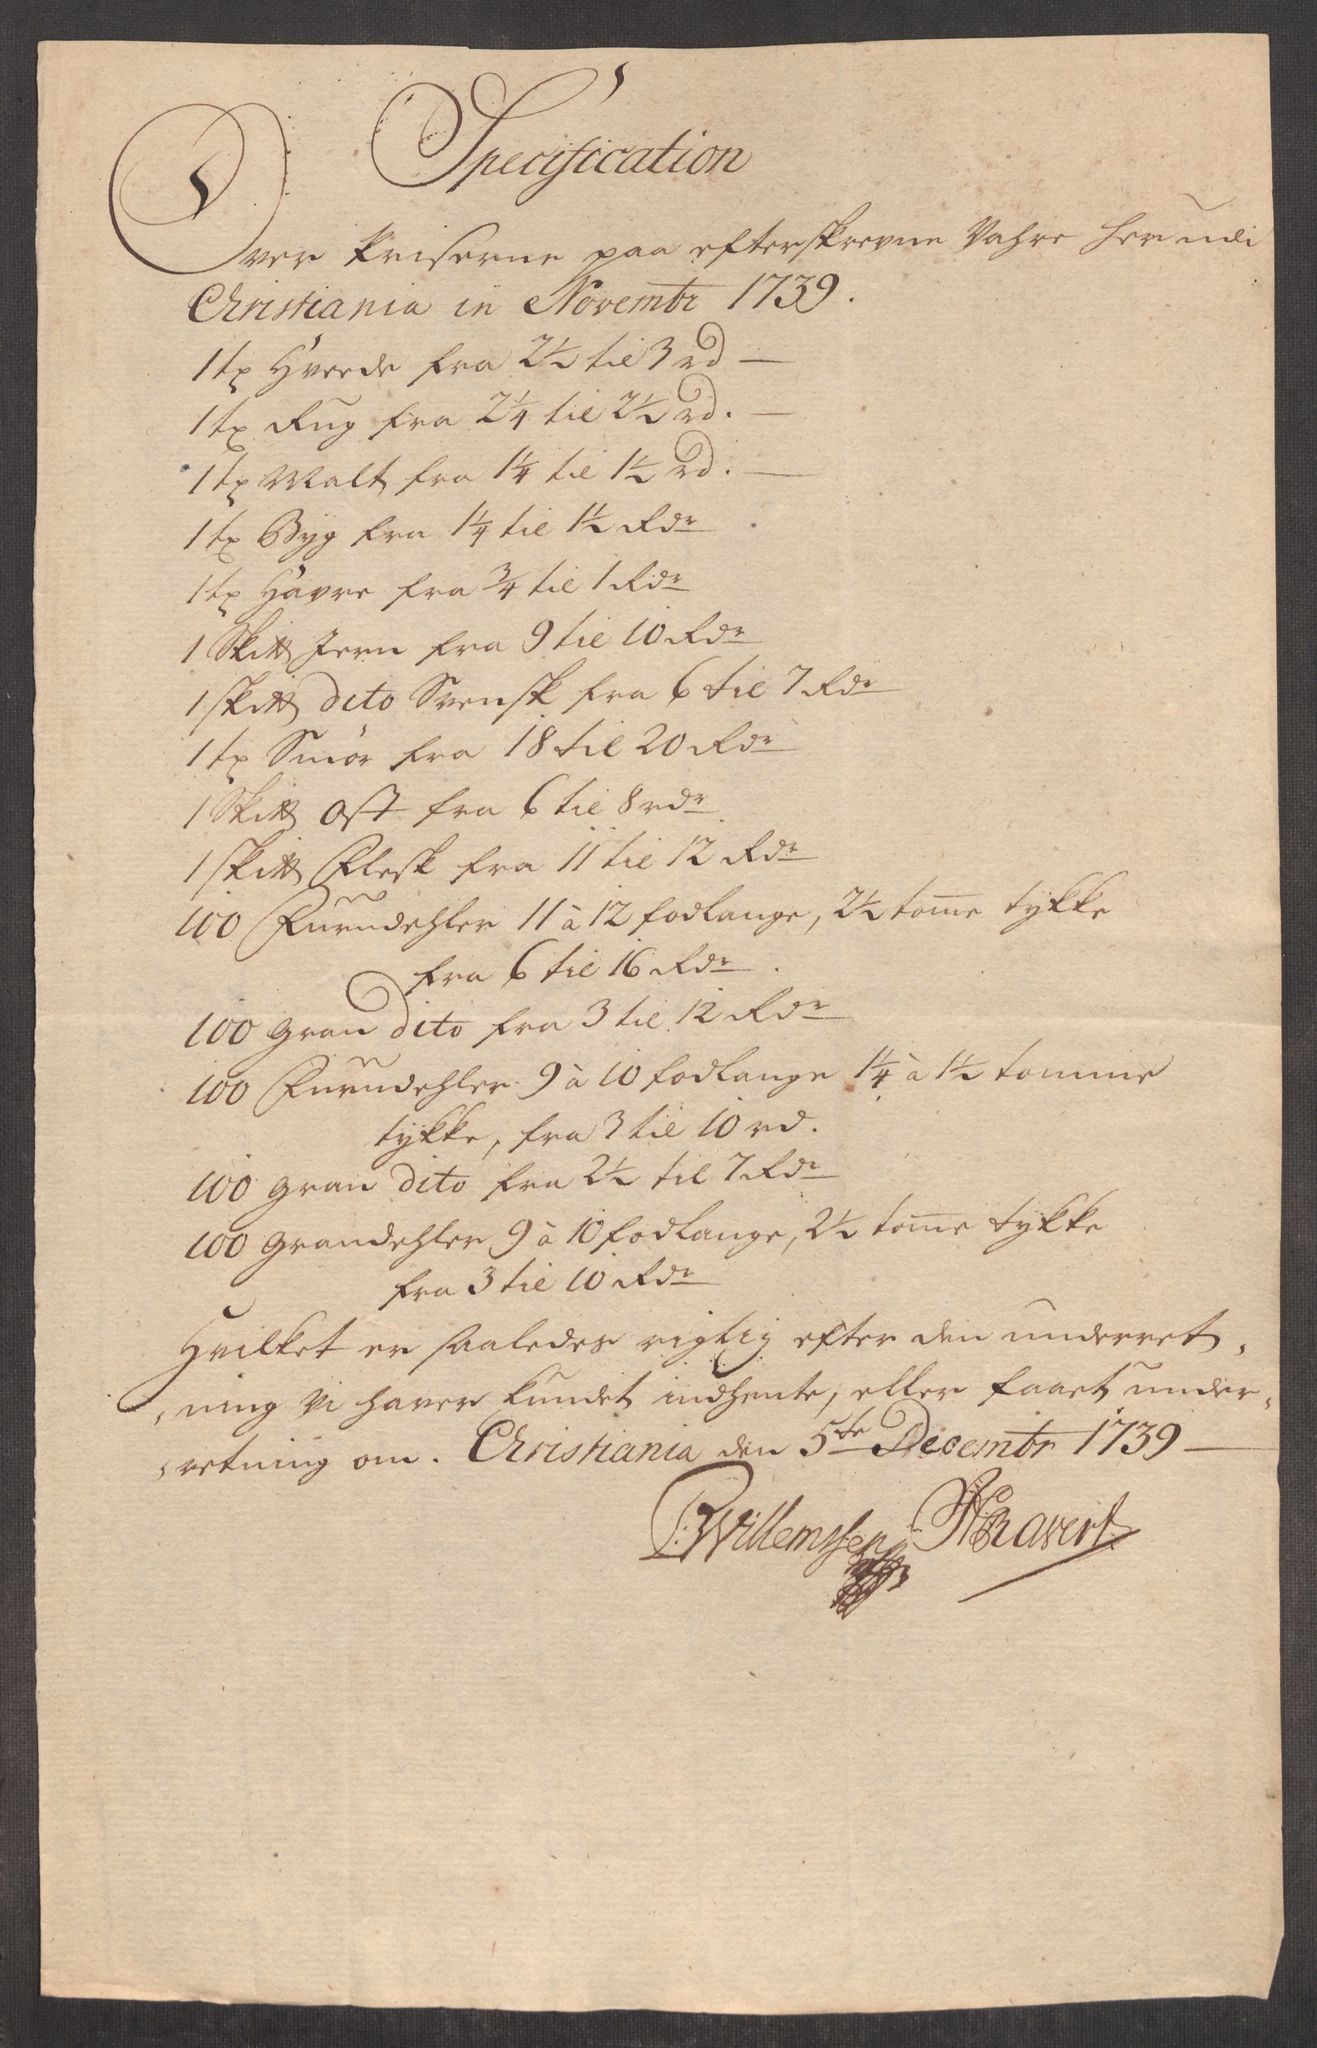 Specification
Over Priserne paa efterskrevne Vahre her udi
Christiania in Novembr 1739.
1 tx Hveede fra 2½ til 3 rd —
1 tx Rug fra 2¼ til 2½ rd. —
1 tx Malt fra 1¼ til 1½ rd. —
1 tx Byg fra 1¼ til 1½ Rdr
1 tx Havre fra ¾ til 1 Rdr
1 Skitt Jern fra 9 til 10 Rdr
1 skitt dito Svensk fra 6 til 7 Rdr
1 tx Smör fra 18 til 20 Rdr
1 Skitt Ost fra 6 til 8 rdr
1 skitt Flesk fra 11 til 12 Rdr
100 Furudehler 11 à 12 fodlange, 2½ tome tykke
fra 6 til 16 Rdr.
100 gran dito fra 3 til 12 Rdr
100 Furudehler 9 à 10 fodlange 1¼ à 1½ tomme
tykke, fra 3 til 10 rd.
100 gran dito fra 2½ til 7 Rdr
100 grandehler 9 à 10 fodlange, 2½ tome tykke
fra 3 til 10 Rdr
Hvilket er saaledes rigtig efter den underret,
,ning vi haver kundet indhente, eller faaet under,
,retning om. Christiania den 5te Decembr 1739 —
Willemssen Ravert